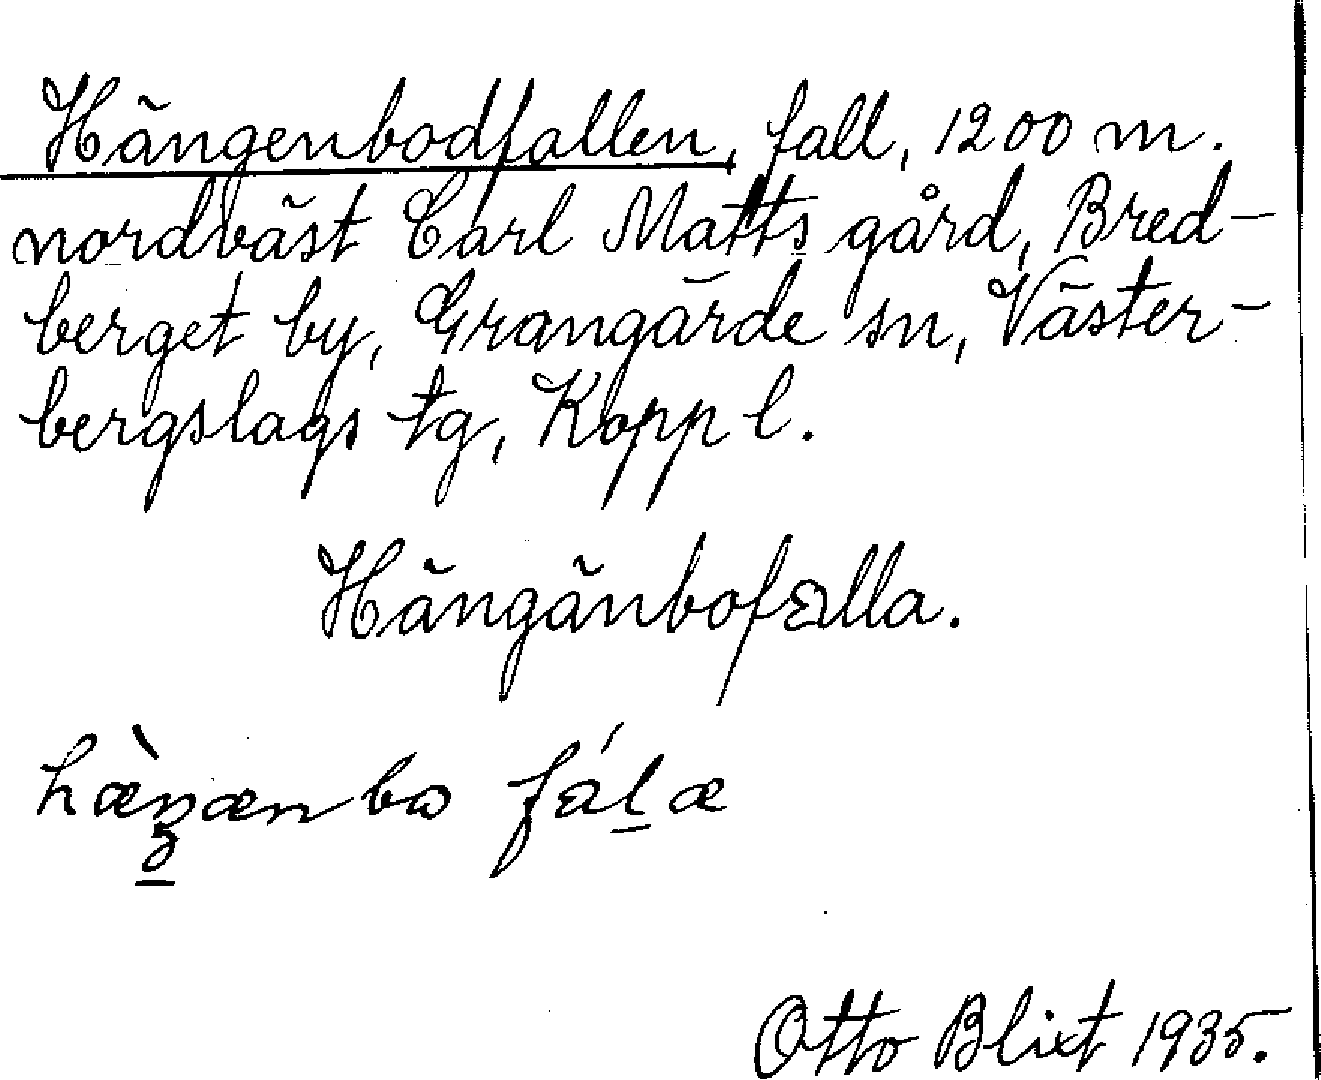 Hängenbodfallen, fall, 1200 m.
nordväst Carl Matts gård, Bred-
berget by, Grangärde sn, Väster-
bergslags tg, Kopp l.
Hängänbofalla.
Otto Blixt 1935.